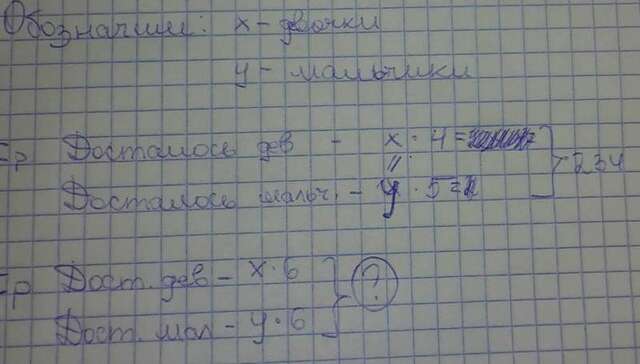 Обозначим: x – двочки
y – мальчики
Iр Досталось дев – x · 4 =
//
Досталось мальч. – y · 5 = 234
IIр Дост. дев – x · 6 ?
Дост. мал – y · 6